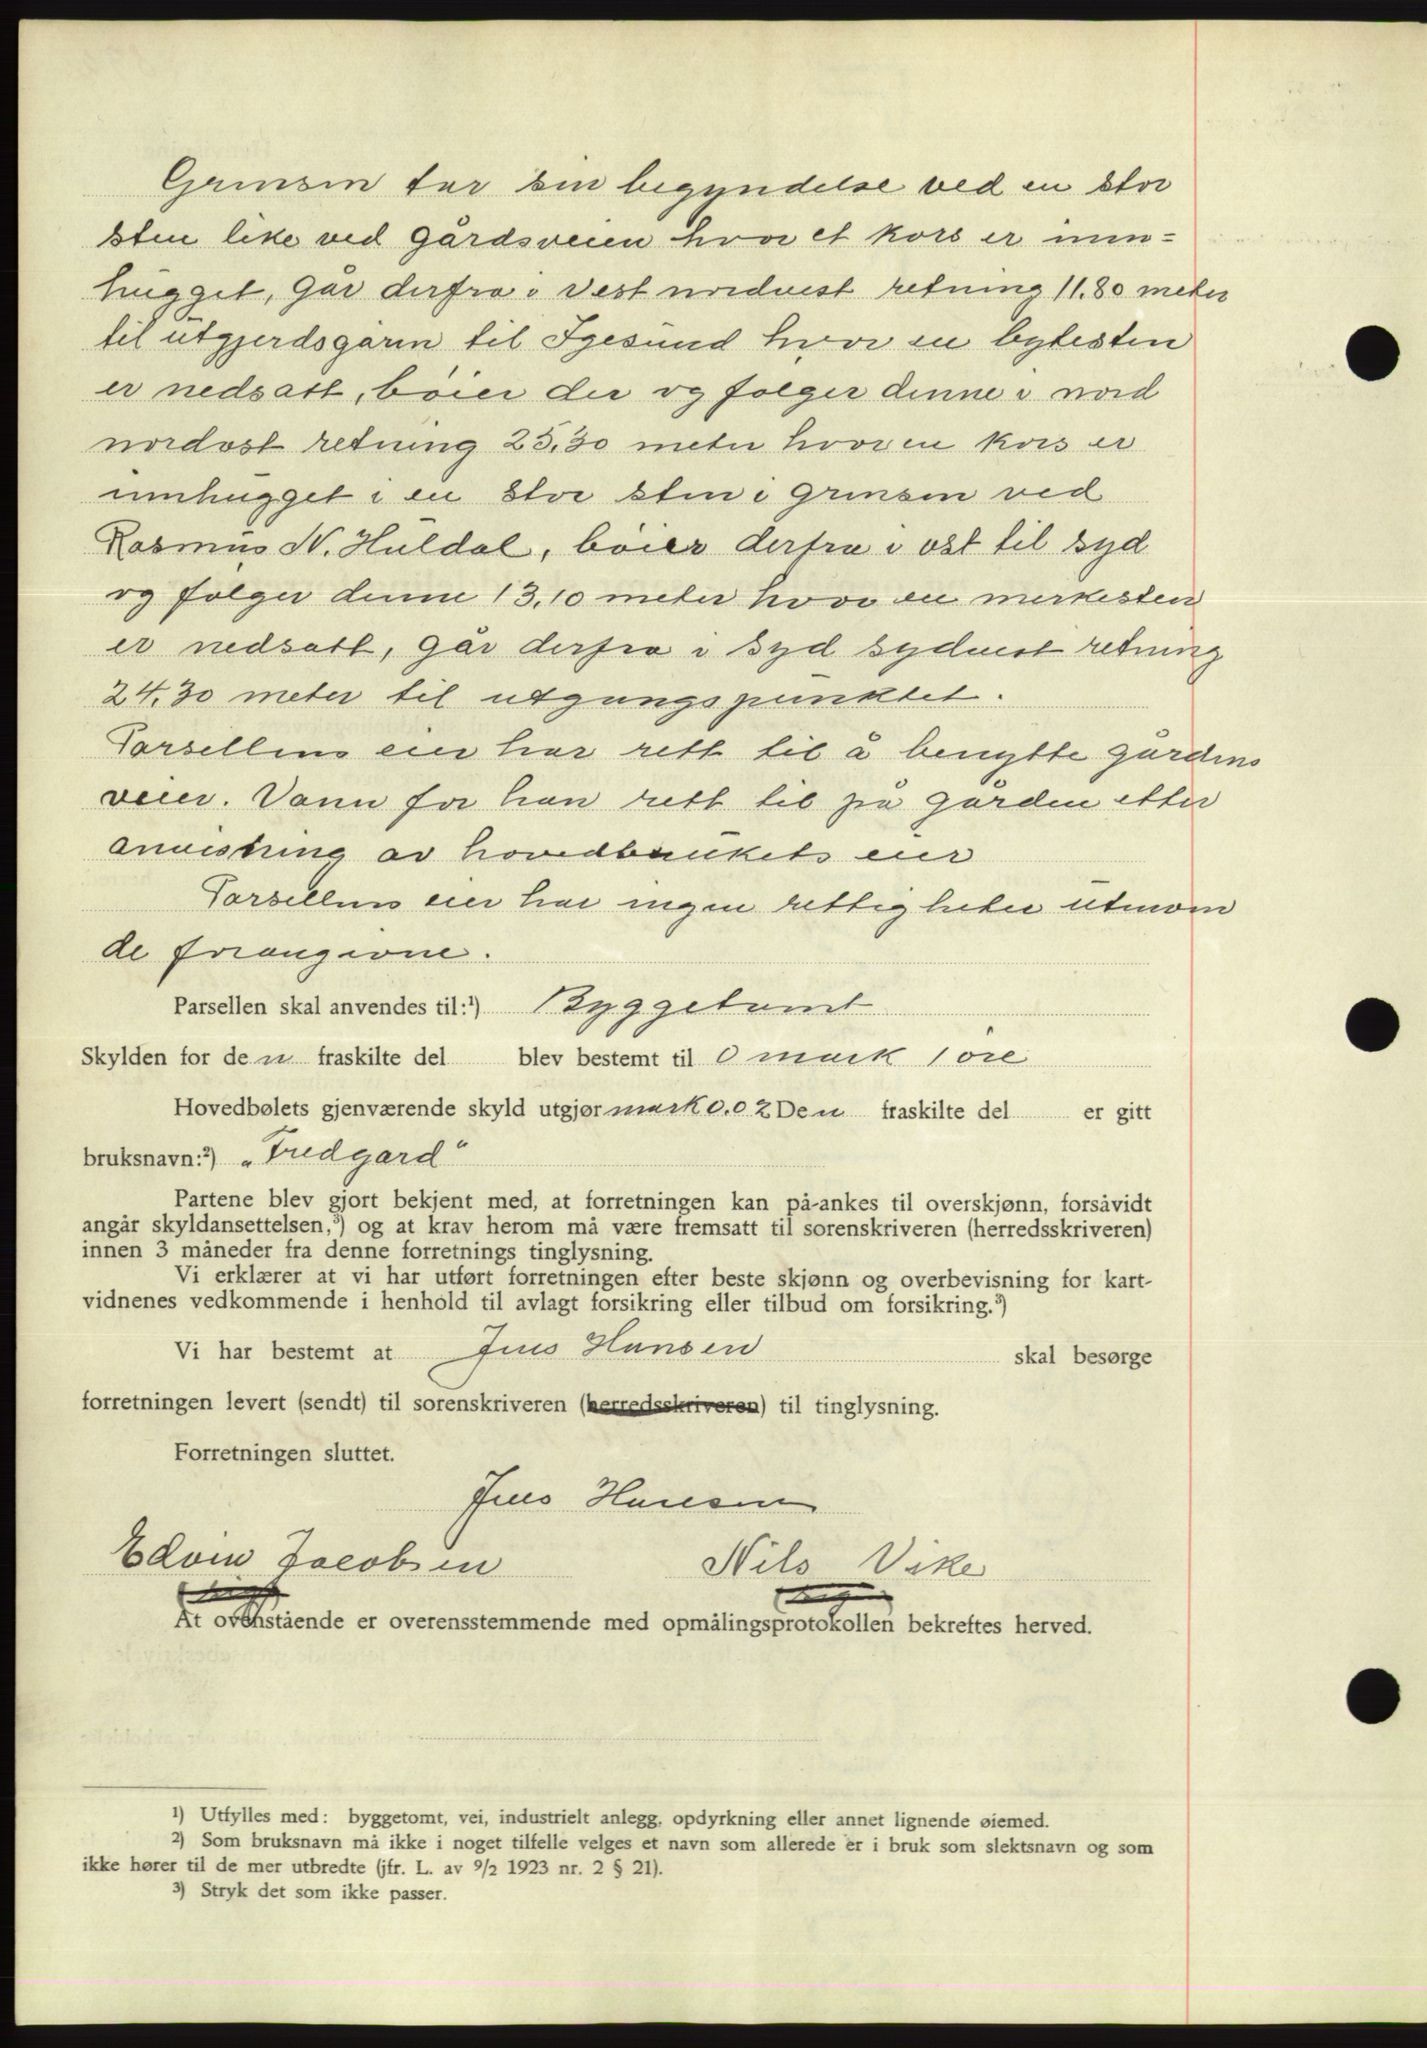 Grensen tar sin begyndelse ved en stor
sten like ved gårdsveien hvor et kors er inn=
hugget, går derfra i vest nordvest retning 11.80 meter
til utgjerdsgarm til Igesund hvor en bytesten
er nedsatt, bøier der og følger denne i nord
nordost retning 25.30 meter hvor en kors er
innhugget i en stor sten i grensen ved
Rasmus N. Huldal, bøier derfra i øst til syd
og følger denne 13.10 meter hvor en merkesten
er nedsatt, går derfra i syd sydvest retning
24.30 meter til utgangspunktet.
Parsellens eier har rett til å benytte gårdens
veier. Vann for han rett til på gården etter
anvisning av hovedbrukets eier
Parsellens eier har ingen rettigheter utenom
de foranngivne.
Parsellen skal anvendes til:¹) Byggetomt
Skylden for den fraskilte del blev bestemt til 0 mark 1 øre
Hovedbølets gjenværende skyld utgjør mark 0.02 Den fraskilte del er gitt
bruksnavn:²) „Fredgard"
Partene blev gjort bekjent med, at forretningen kan på-ankes til overskjønn, forsåvidt
angår skyldansettelsen,³) og at krav herom må være fremsatt til sorenskriveren (herredsskriveren)
innen 3 måneder fra denne forretnings tinglysning.
Vi erklærer at vi har utført forretningen efter beste skjønn og overbevisning for kart-
vidnenes vedkommende i henhold til avlagt forsikring eller tilbud om forsikring.³)
Vi har bestemt at Jens Hansen skal besørge
forretningen levert (sendt) til sorenskriveren (herredsskriveren) til tinglysning.
Forretningen sluttet.
Jens Hansen
Edvin Jacobsen Nils Vike
At ovenstående er overensstemmende med opmålingsprotokollen bekreftes herved.
¹) Utfylles med: byggetomt, vei, industrielt anlegg, opdyrkning eller annet lignende øiemed.
²) Som bruksnavn må ikke i noget tilfelle velges et navn som allerede er i bruk som slektsnavn og som
ikke hører til de mer utbredte (jfr. L. av 9/2 1923 nr. 2 § 21).
³) Stryk det som ikke passer.